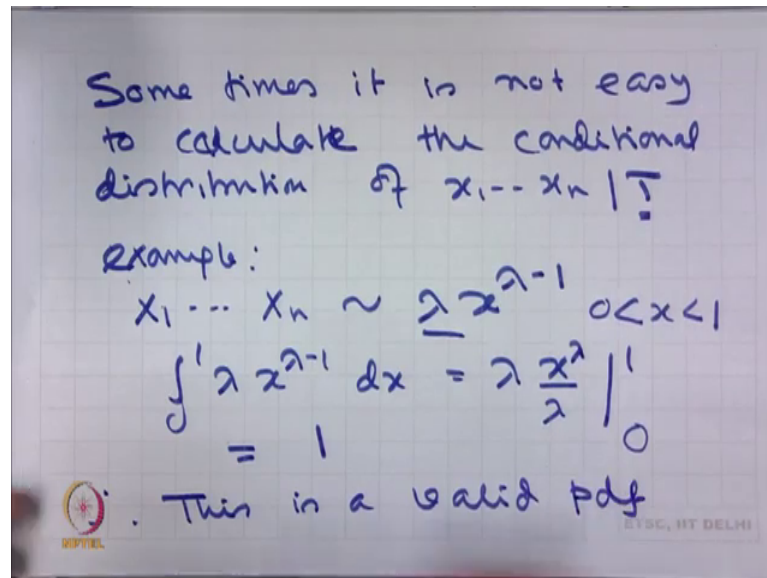 Some times it is not easy
to calculate the conditional
distribution of x₁ -- xₙ | T.
example:
X₁ --- Xₙ ~ λ x^{λ-1} 0<x<1
∫₀¹ λ x^{λ-1} dx = λ x^λ/λ |₀¹
= 1
∴ This is a valid pdf
NPTEL
ETSC, IIT DELHI